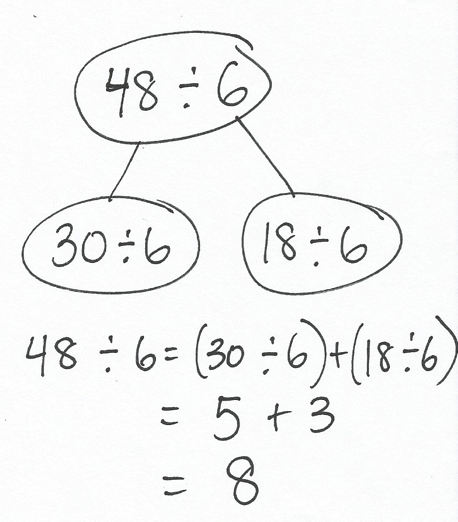 48 ÷ 6
30÷6
18÷6
48 ÷ 6 = (30 ÷ 6) + (18÷6)
= 5 + 3
= 8